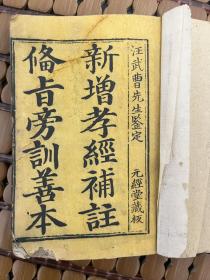 汪武曹先生鑒定
新增孝經補註
俻旨旁訓善本
元經堂藏板